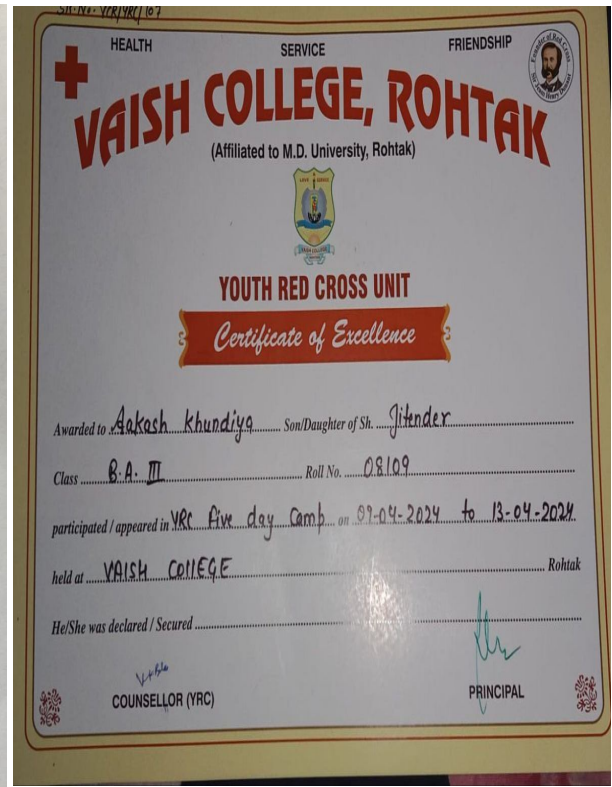 SR. No. YCR/YRC/107
HEALTH SERVICE FRIENDSHIP
Founder of Red Cross
Sir Jean Henry Dunant
VAISH COLLEGE, ROHTAK
(Affiliated to M.D. University, Rohtak)
VAISH COLLEGE
YOUTH RED CROSS UNIT
Certificate of Excellence
Awarded to Aakash Khundiya Son/Daughter of Sh. Jitender
Class B.A. III Roll No. 08109
participated / appeared in YRC Five day Camp on 09-04-2024 to 13-04-2024
held at VAISH COllEGE Rohtak
He/She was declared / Secured
COUNSELLOR (YRC) PRINCIPAL